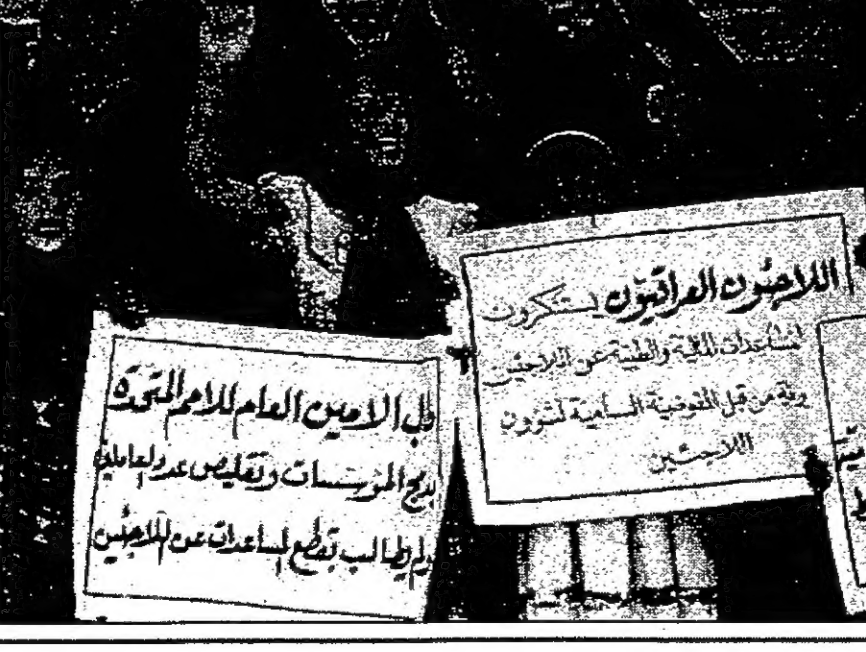 اللاجئون العراقيون يستنكرون
المساعدات المالية والطبية عن اللاجئين
من قبل المفوضية السامية لشؤون
اللاجئين
الامين العام للامم المتحدة
بدمج المؤسسات وتقليص عدد العاملين
ولم يطالب بقطع المساعدات عن اللاجئين